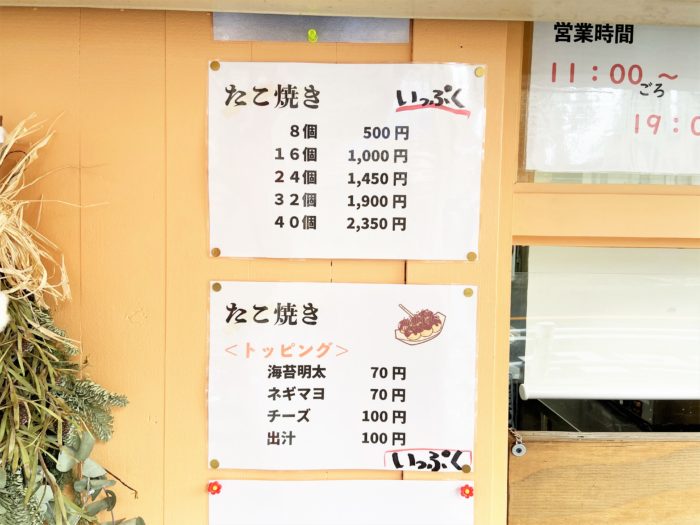 たこ焼き いっぷく
８個 500円
１６個 1,000円
２４個 1,450円
３２個 1,900円
４０個 2,350円
たこ焼き
＜トッピング＞
海苔明太 70円
ネギマヨ 70円
チーズ 100円
出汁 100円
いっぷく
営業時間
11：00～
ごろ
19：0